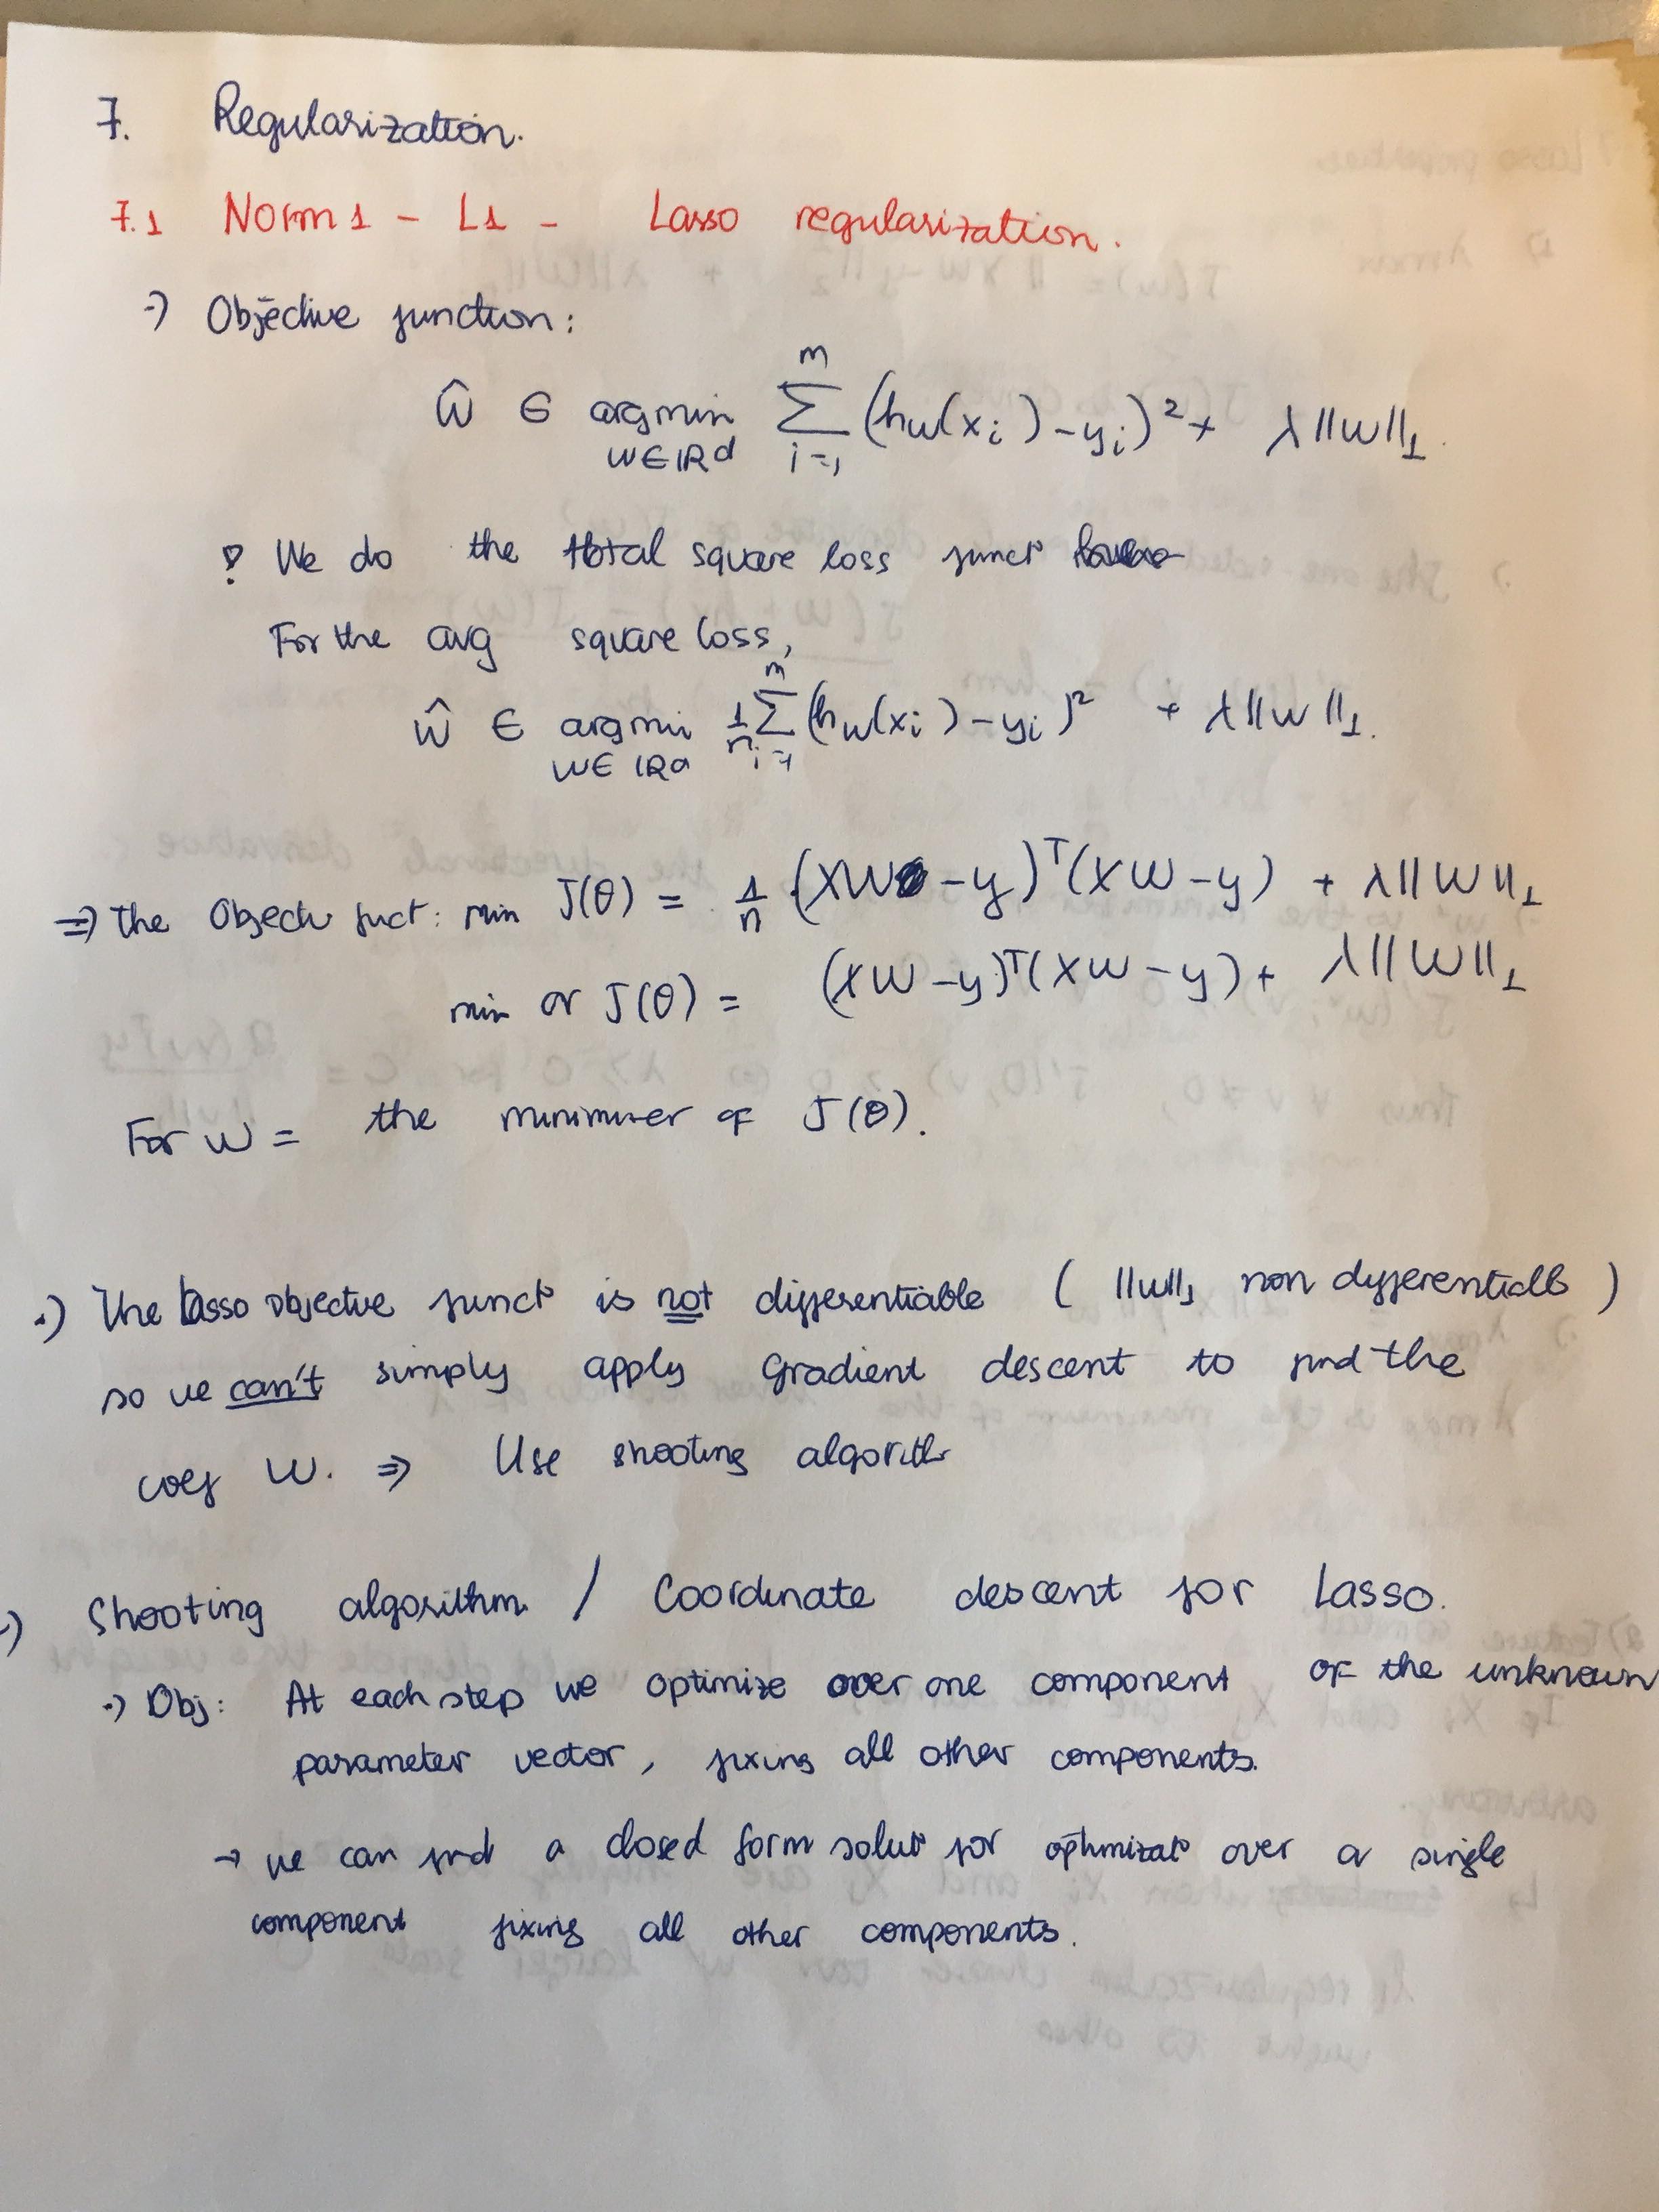 7. Regularization.
7.1 Norm 1 - L1 - Lasso regularization.
·) Objective function:
ŵ ∈ argmin w∈ℝd m Σ i=1 (hw(xi) - yi)² + λ||w||1.
! We do the total square loss funct°
For the avg square loss,
ŵ ∈ argmin w∈ℝd 1/n m Σ i=1 (hw(xi) - yi)² + λ||w||1.
=> the Object fuct: min J(θ) = 1/n (XW - y)ᵀ(XW - y) + λ||W||1
min or J(θ) = (XW - y)ᵀ(XW - y) + λ||W||1
For w = the minimizer of J(θ).
·) The lasso objective funct° is not differentiable ( ||w||1 non differentiable )
so we can't simply apply gradient descent to find the
coef W. => Use shooting algorith
·) Shooting algorithm / Coordinate descent for Lasso.
·) Obj: At each step we optimize over one component of the unknown
parameter vector, fixing all other components.
→ we can find a closed form solut° for optimizat° over a single
component fixing all other components.